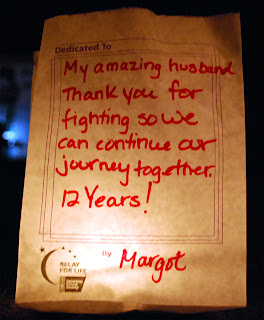 Dedicated To
My amazing husband
Thank you for
fighting so we
can continue our
journey together.
12 Years!
By Margot
RELAY
FOR LIFE